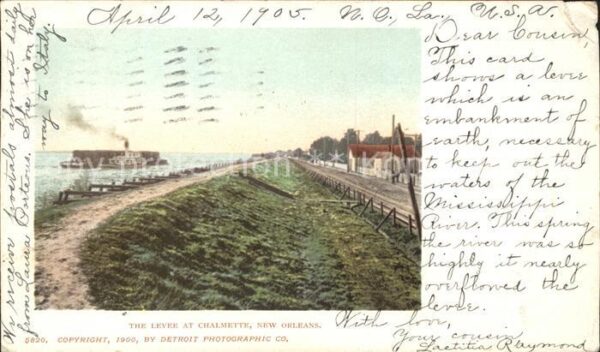 April 12, 1905. N.O., La., U.S.A.
Dear Cousin,
This card
shows a levee
which is an
embankment of
earth, necessary
to keep out the
waters of the
Mississippi
River. This spring
the river was so
highly it nearly
overflowed the
levee.
With love,
Your cousin
Laetitia Raymond
We receive postals almost daily
from Laura Porteous. She is on her
way to Italy.
THE LEVEE AT CHALMETTE, NEW ORLEANS.
5820. COPYRIGHT, 1900, BY DETROIT PHOTOGRAPHIC CO.